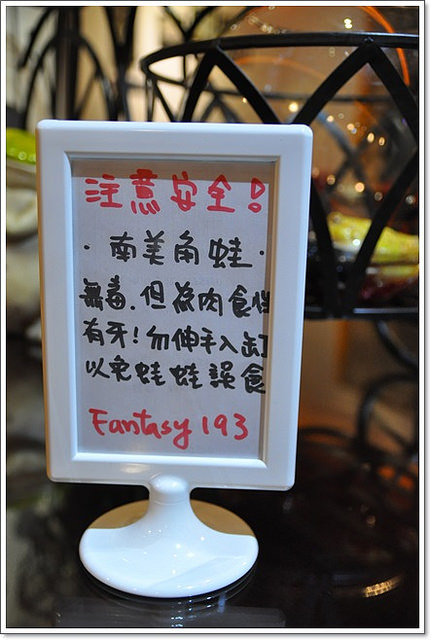 注意安全!
·南美角蛙·
無毒.但為肉食性
有牙!勿伸手入缸
以免蛙蛙誤食
Fantasy 193